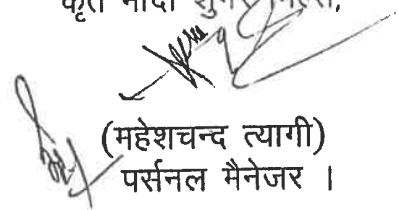 कृते मोदी शुगर मिल्स,
(महेशचन्द त्यागी)
पर्सनल मैनेजर ।